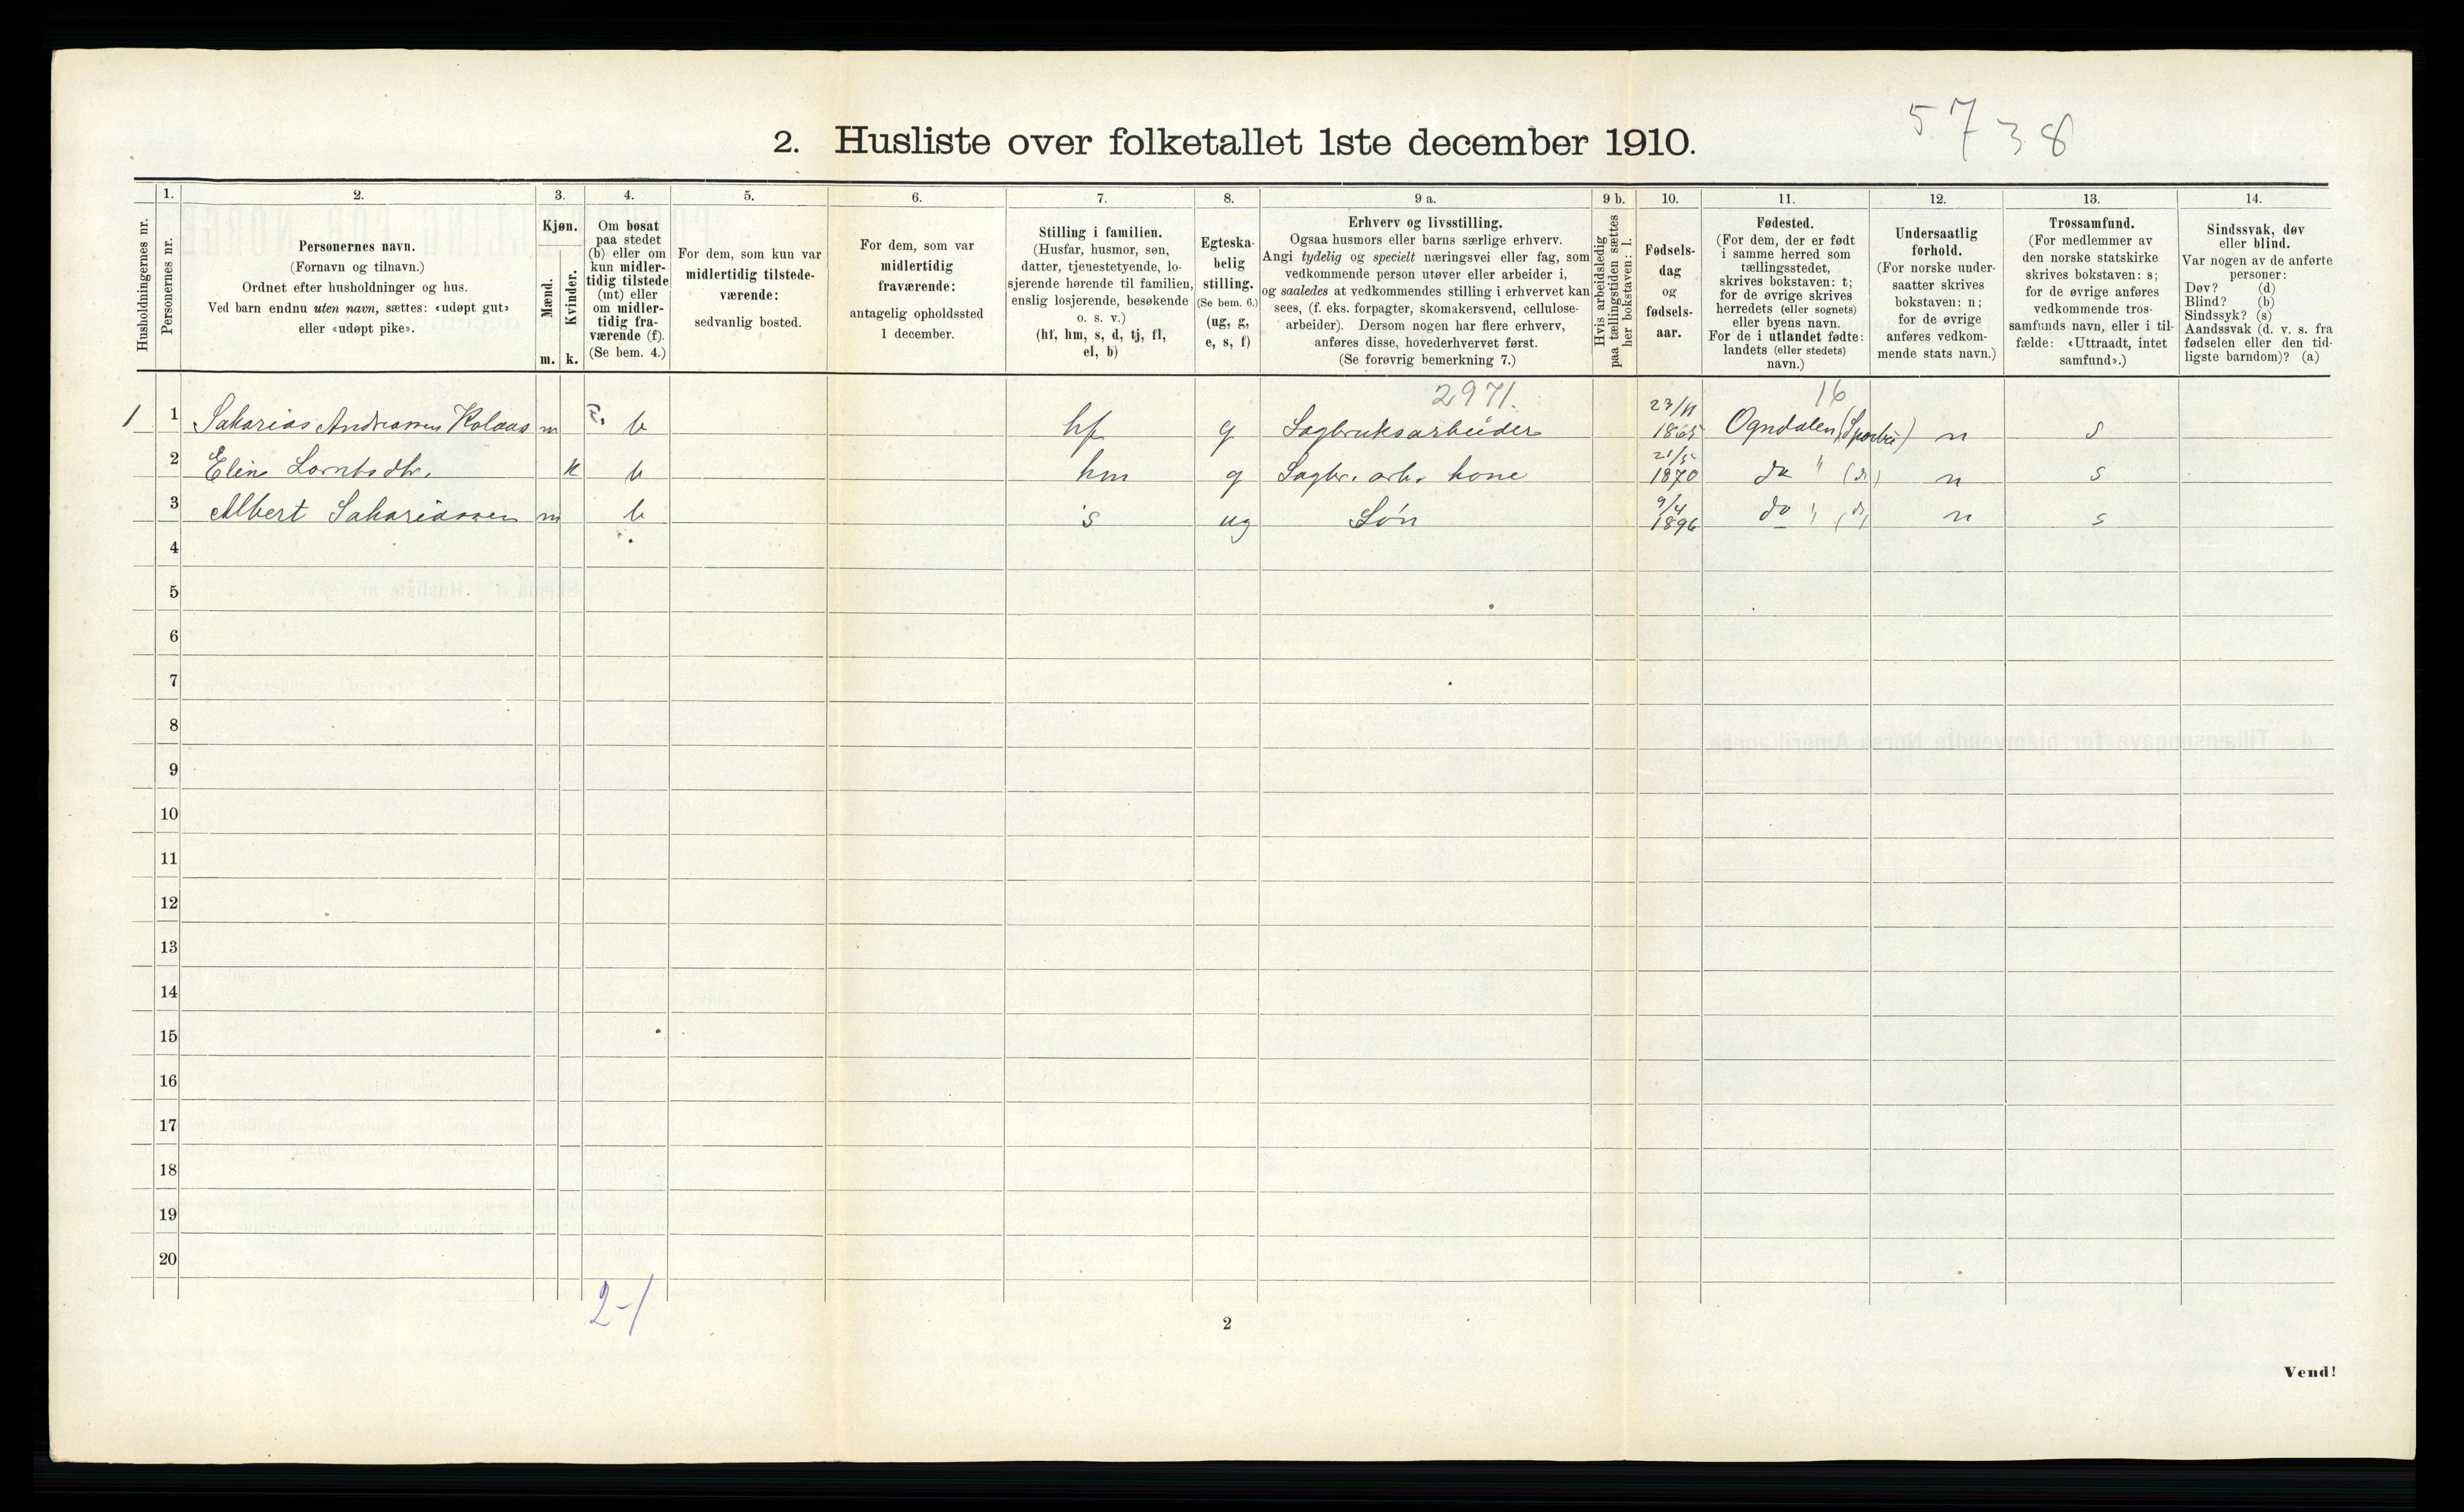 5738
2. Husliste over folketallet 1ste december 1910.
Husholdningernes nr.
1.
Personernes nr.
2.
Personernes navn.
(Fornavn og tilnavn.)
Ordnet efter husholdninger og hus.
Ved barn endnu uten navn, sættes: «udøpt gut»
eller «udøpt pike».
3.
Kjøn.
Mænd.
Kvinder.
m. k.
4.
Om bosat
paa stedet
(b) eller om
kun midler-
tidig tilstede
(mt) eller
om midler-
tidig fra-
værende (f).
(Se bem. 4.)
5.
For dem, som kun var
midlertidig tilstede-
værende:
sedvanlig bosted.
6.
For dem, som var
midlertidig
fraværende:
antagelig opholdssted
1 december.
7.
Stilling i familien.
(Husfar, husmor, søn,
datter, tjenestetyende, lo-
sjerende hørende til familien,
enslig losjerende, besøkende
o. s. v.)
(hf, hm, s, d, tj, fl,
el, b)
8.
Egteska-
belig
stilling.
(Se bem. 6.)
(ug, g,
e, s, f)
9 a.
Erhverv og livsstilling.
Ogsaa husmors eller barns særlige erhverv.
Angi tydelig og specielt næringsvei eller fag, som
vedkommende person utøver eller arbeider i,
og saaledes at vedkommendes stilling i erhvervet kan
sees, (f. eks. forpagter, skomakersvend, cellulose-
arbeider). Dersom nogen har flere erhverv,
anføres disse, hovederhvervet først.
(Se forøvrig bemerkning 7.)
9 b.
Hvis arbeidsledig
paa tællingstiden sættes
her bokstaven: l.
10.
Fødsels-
dag
og
fødsels-
aar.
11.
Fødested.
(For dem, der er født
i samme herred som
tællingsstedet,
skrives bokstaven: t;
for de øvrige skrives
herredets (eller sognets)
eller byens navn.
For de i utlandet fødte:
landets (eller stedets)
navn.)
12.
Undersaatlig
forhold.
(For norske under-
saatter skrives
bokstaven: n;
for de øvrige
anføres vedkom-
mende stats navn.)
13.
Trossamfund.
(For medlemmer av
den norske statskirke
skrives bokstaven: s;
for de øvrige anføres
vedkommende tros-
samfunds navn, eller i til-
fælde: «Uttraadt, intet
samfund».)
14.
Sindssvak, døv
eller blind.
Var nogen av de anførte
personer:
Døv? (d)
Blind? (b)
Sindssyk? (s)
Aandssvak (d. v. s. fra
fødselen eller den tid-
ligste barndom)? (a)
2971. 16
1 1 Sakarias Andreassen Kolaas m b hf g Sagbruksarbeider 23/11 1865 Ogndalen (Sparbu) n s
2 Eline Lorntsdtr. k b hm g Sagbr. arb. kone 21/5 1870 do " (do) n s
3 Albert Sakariassen m b s ug Søn 9/4 1896 do " (do) n s
4
5
6
7
8
9
10
11
12
13
14
15
16
17
18
19
20
2-1
2
Vend!